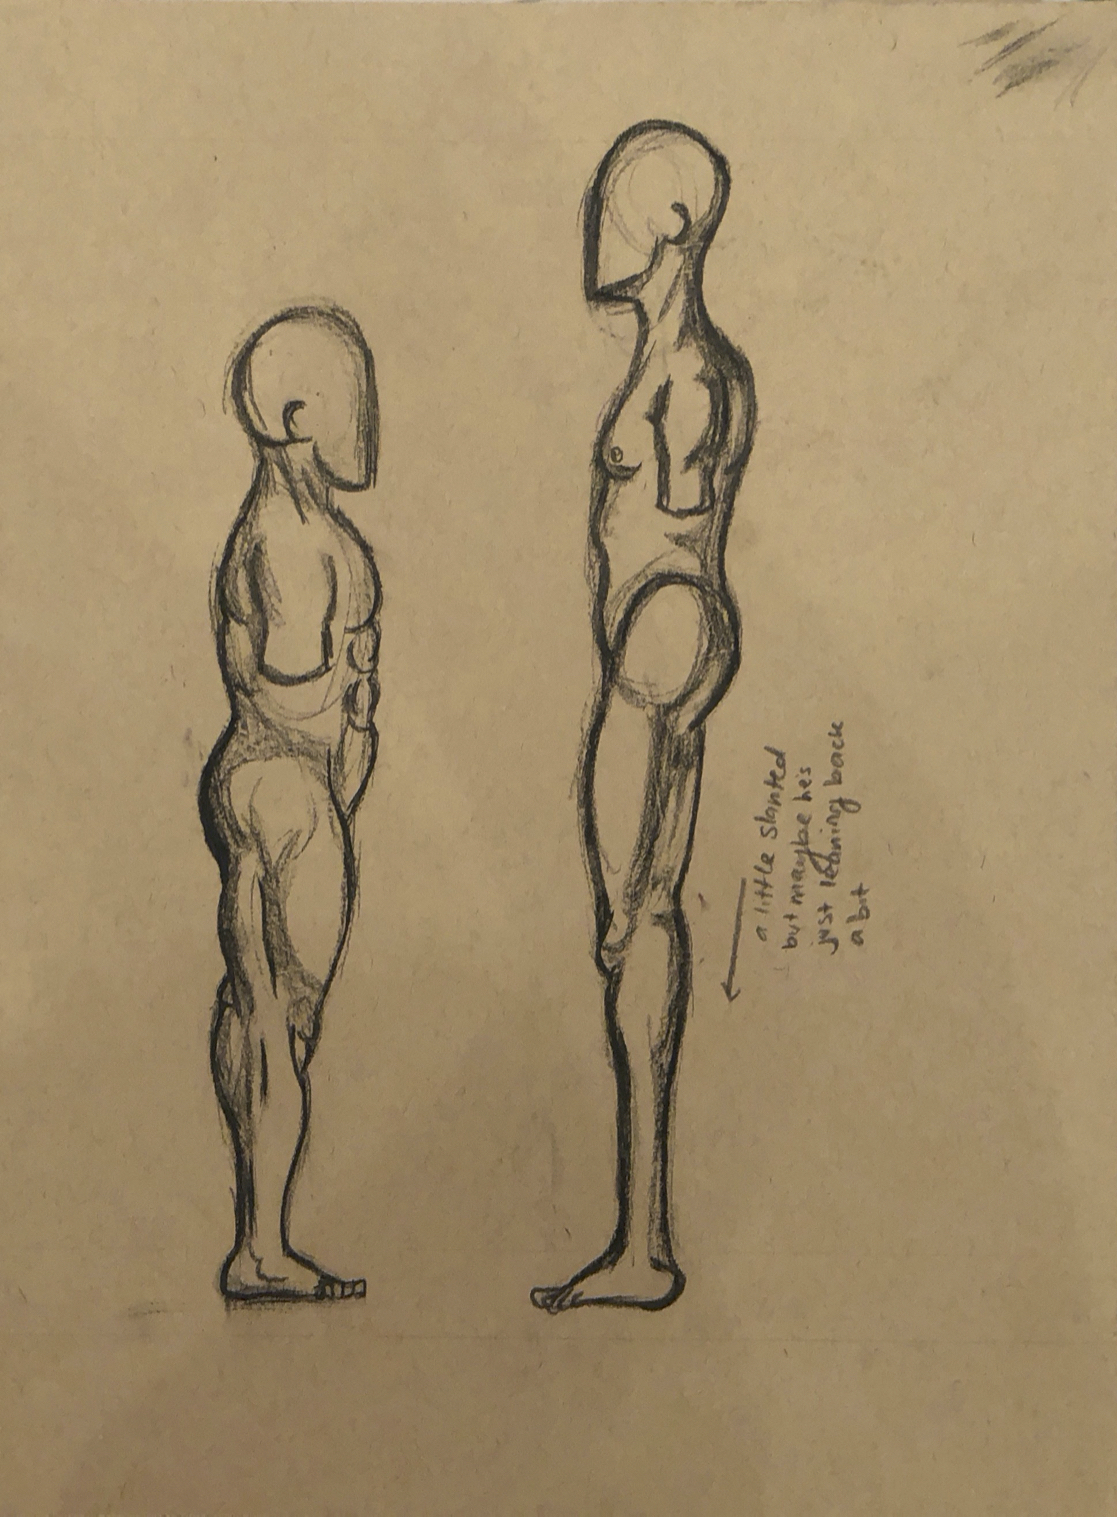 a little slanted
but maybe he's
just leaning back
a bit